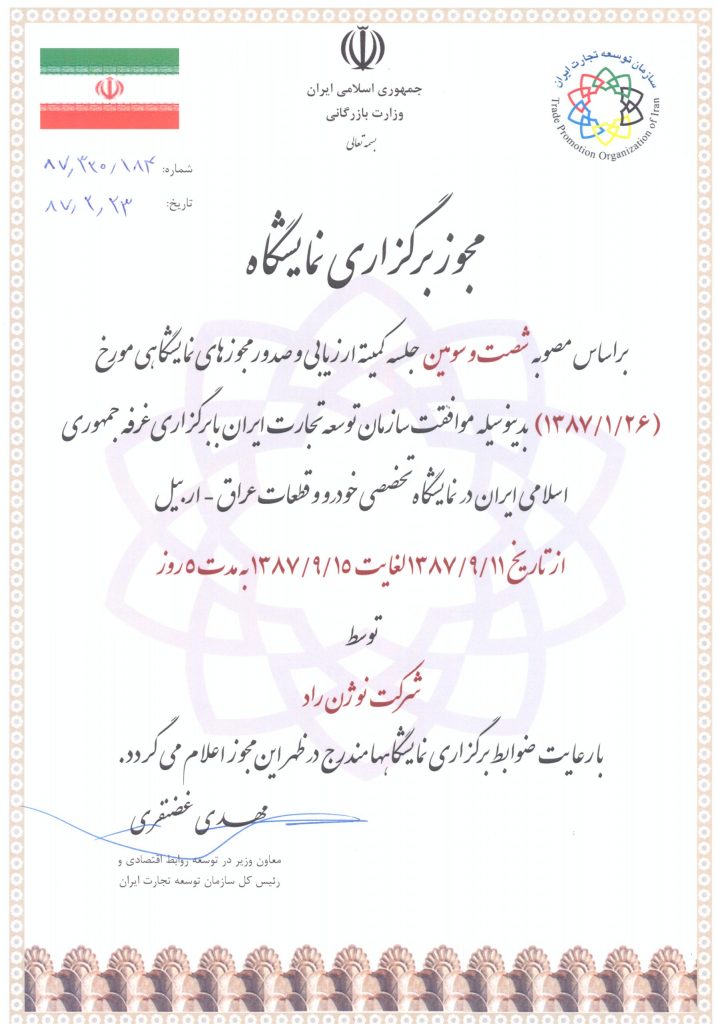 جمهوری اسلامی ایران
وزارت بازرگانی
بسمه تعالی
سازمان توسعه تجارت ایران
Trade Promotion Organization of Iran
شماره: ۸۷٫۳۲۰٫۱۸۴
تاریخ: ۸۷٫۲٫۲۳
مجوز برگزاری نمایشگاه
براساس مصوبه شصت و سومین جلسه کمیته ارزیابی و صدور مجوزهای نمایشگاهی مورخ
(۱۳۸۷/۱/۲۶) بدینوسیله موافقت سازمان توسعه تجارت ایران با برگزاری غرفه جمهوری
اسلامی ایران در نمایشگاه تخصصی خودرو و قطعات عراق - اربیل
از تاریخ ۱۳۸۷/۹/۱۱ لغایت ۱۳۸۷/۹/۱۵ به مدت ۵ روز
توسط
شرکت نوژن راد
با رعایت ضوابط برگزاری نمایشگاهها مندرج در ظهر این مجوز اعلام می گردد.
مهدی غضنفری
معاون وزیر در توسعه روابط اقتصادی و
رئیس کل سازمان توسعه تجارت ایران